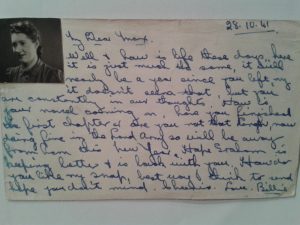 28.10.41
My Dear Max.
Well & how is life these days, here
it is just much the same, it will
nearly be a year since you left my
it doesn't seem that but you
are constantly in our thoughts, How is
novel coming on, have you finished
the first chapter & are you not that far, now
going in the so will be away
from this few Hope Graham is
better & is back with you, How do
you like my snap, best way I think to send
hope you didn't mind, Cheerio. Love. Billie